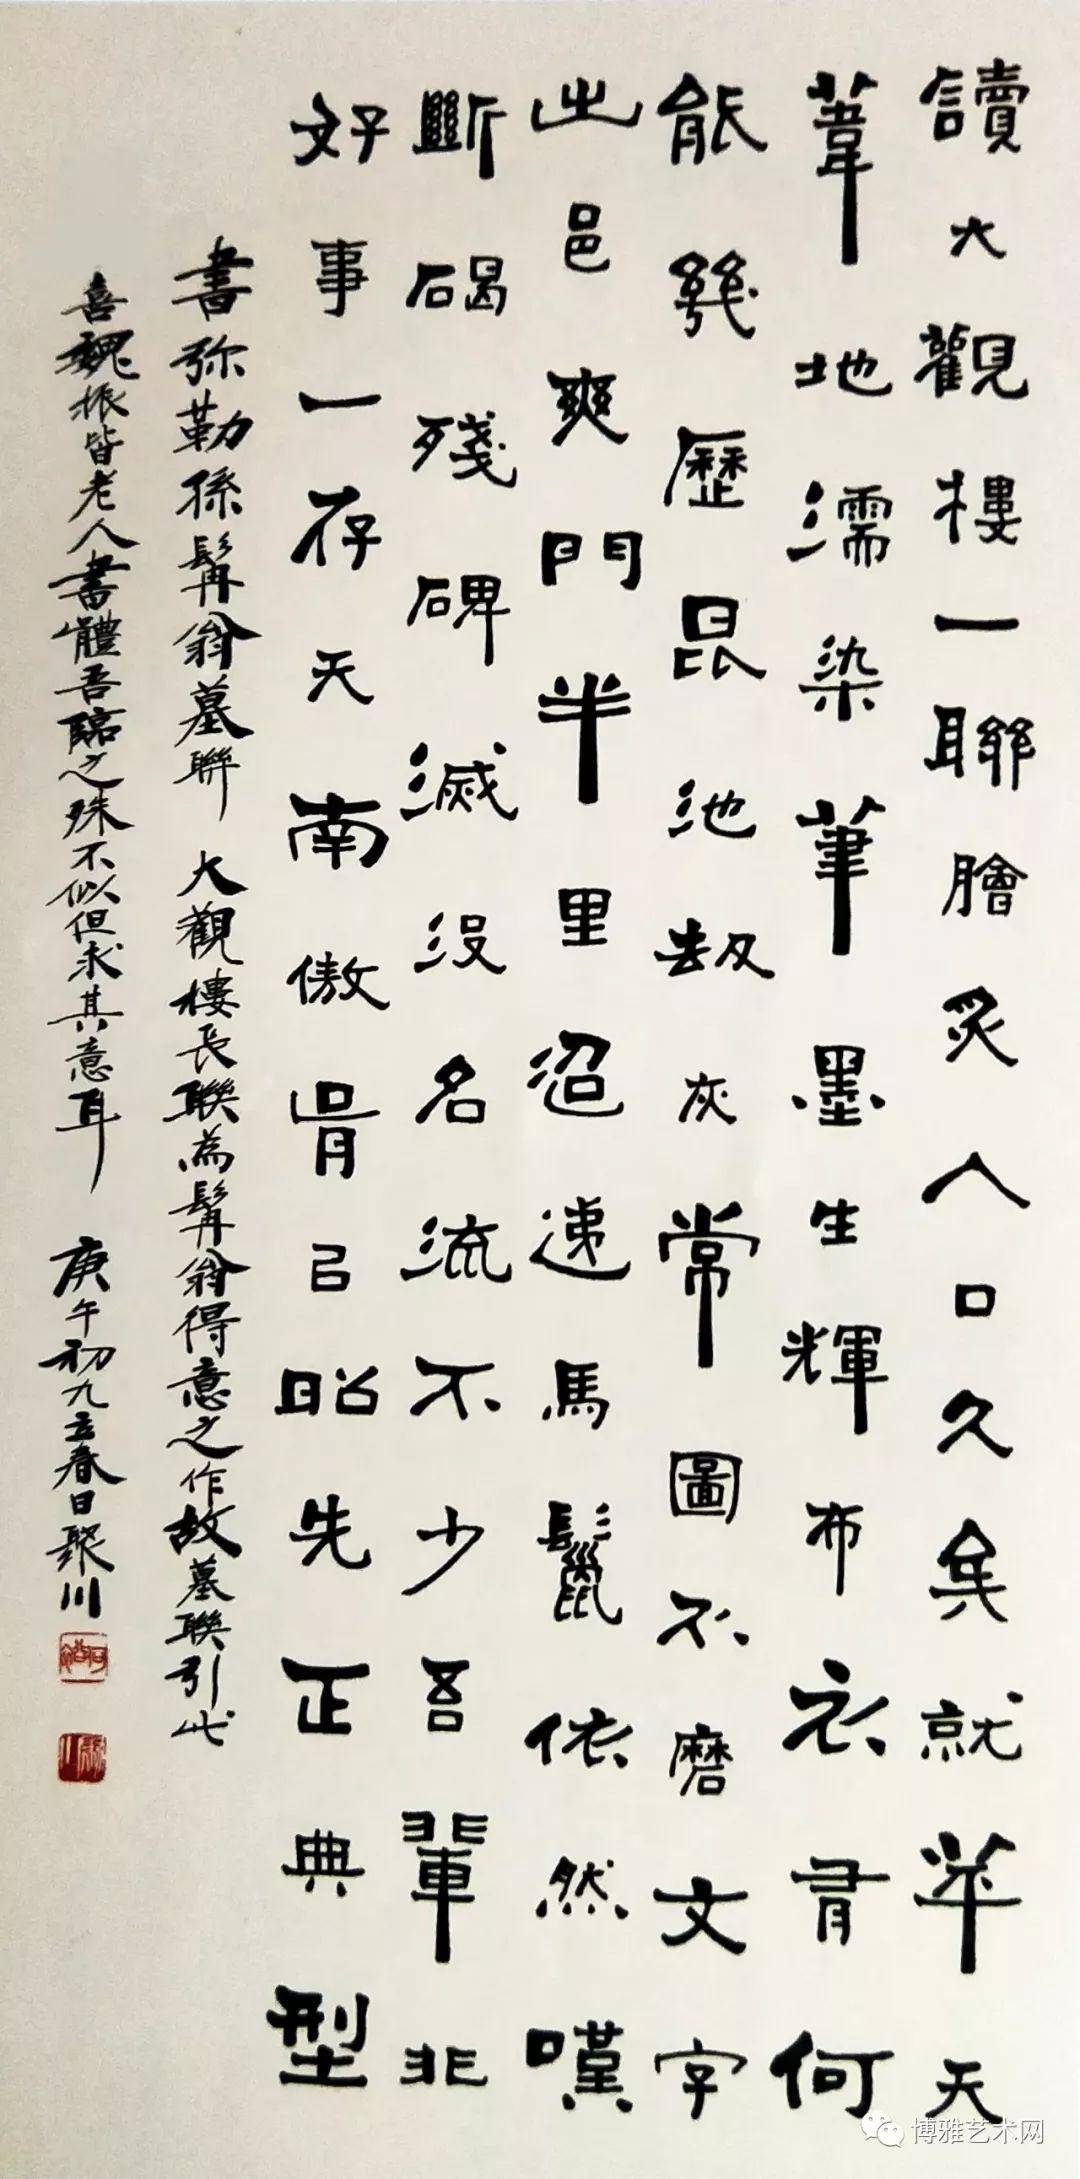 讀大觀樓一聯膾炙人口久矣就苹天
葦地濡染筆墨生輝布衣有何
能幾歷昆池劫灰常圖不磨文字
出邑爽門半里迢遞馬鬣依然嘆
斷碣殘碑滅沒名流不少吾輩非
好事一存天南傲骨㠯昭先正典型
書弥勒孫髯翁墓聯 大觀樓長聯為髯翁得意之作故墓聯引此
喜魏振皆老人書體吾臨之殊不似但求其意耳 庚午初九立春日聚川
博雅艺术网